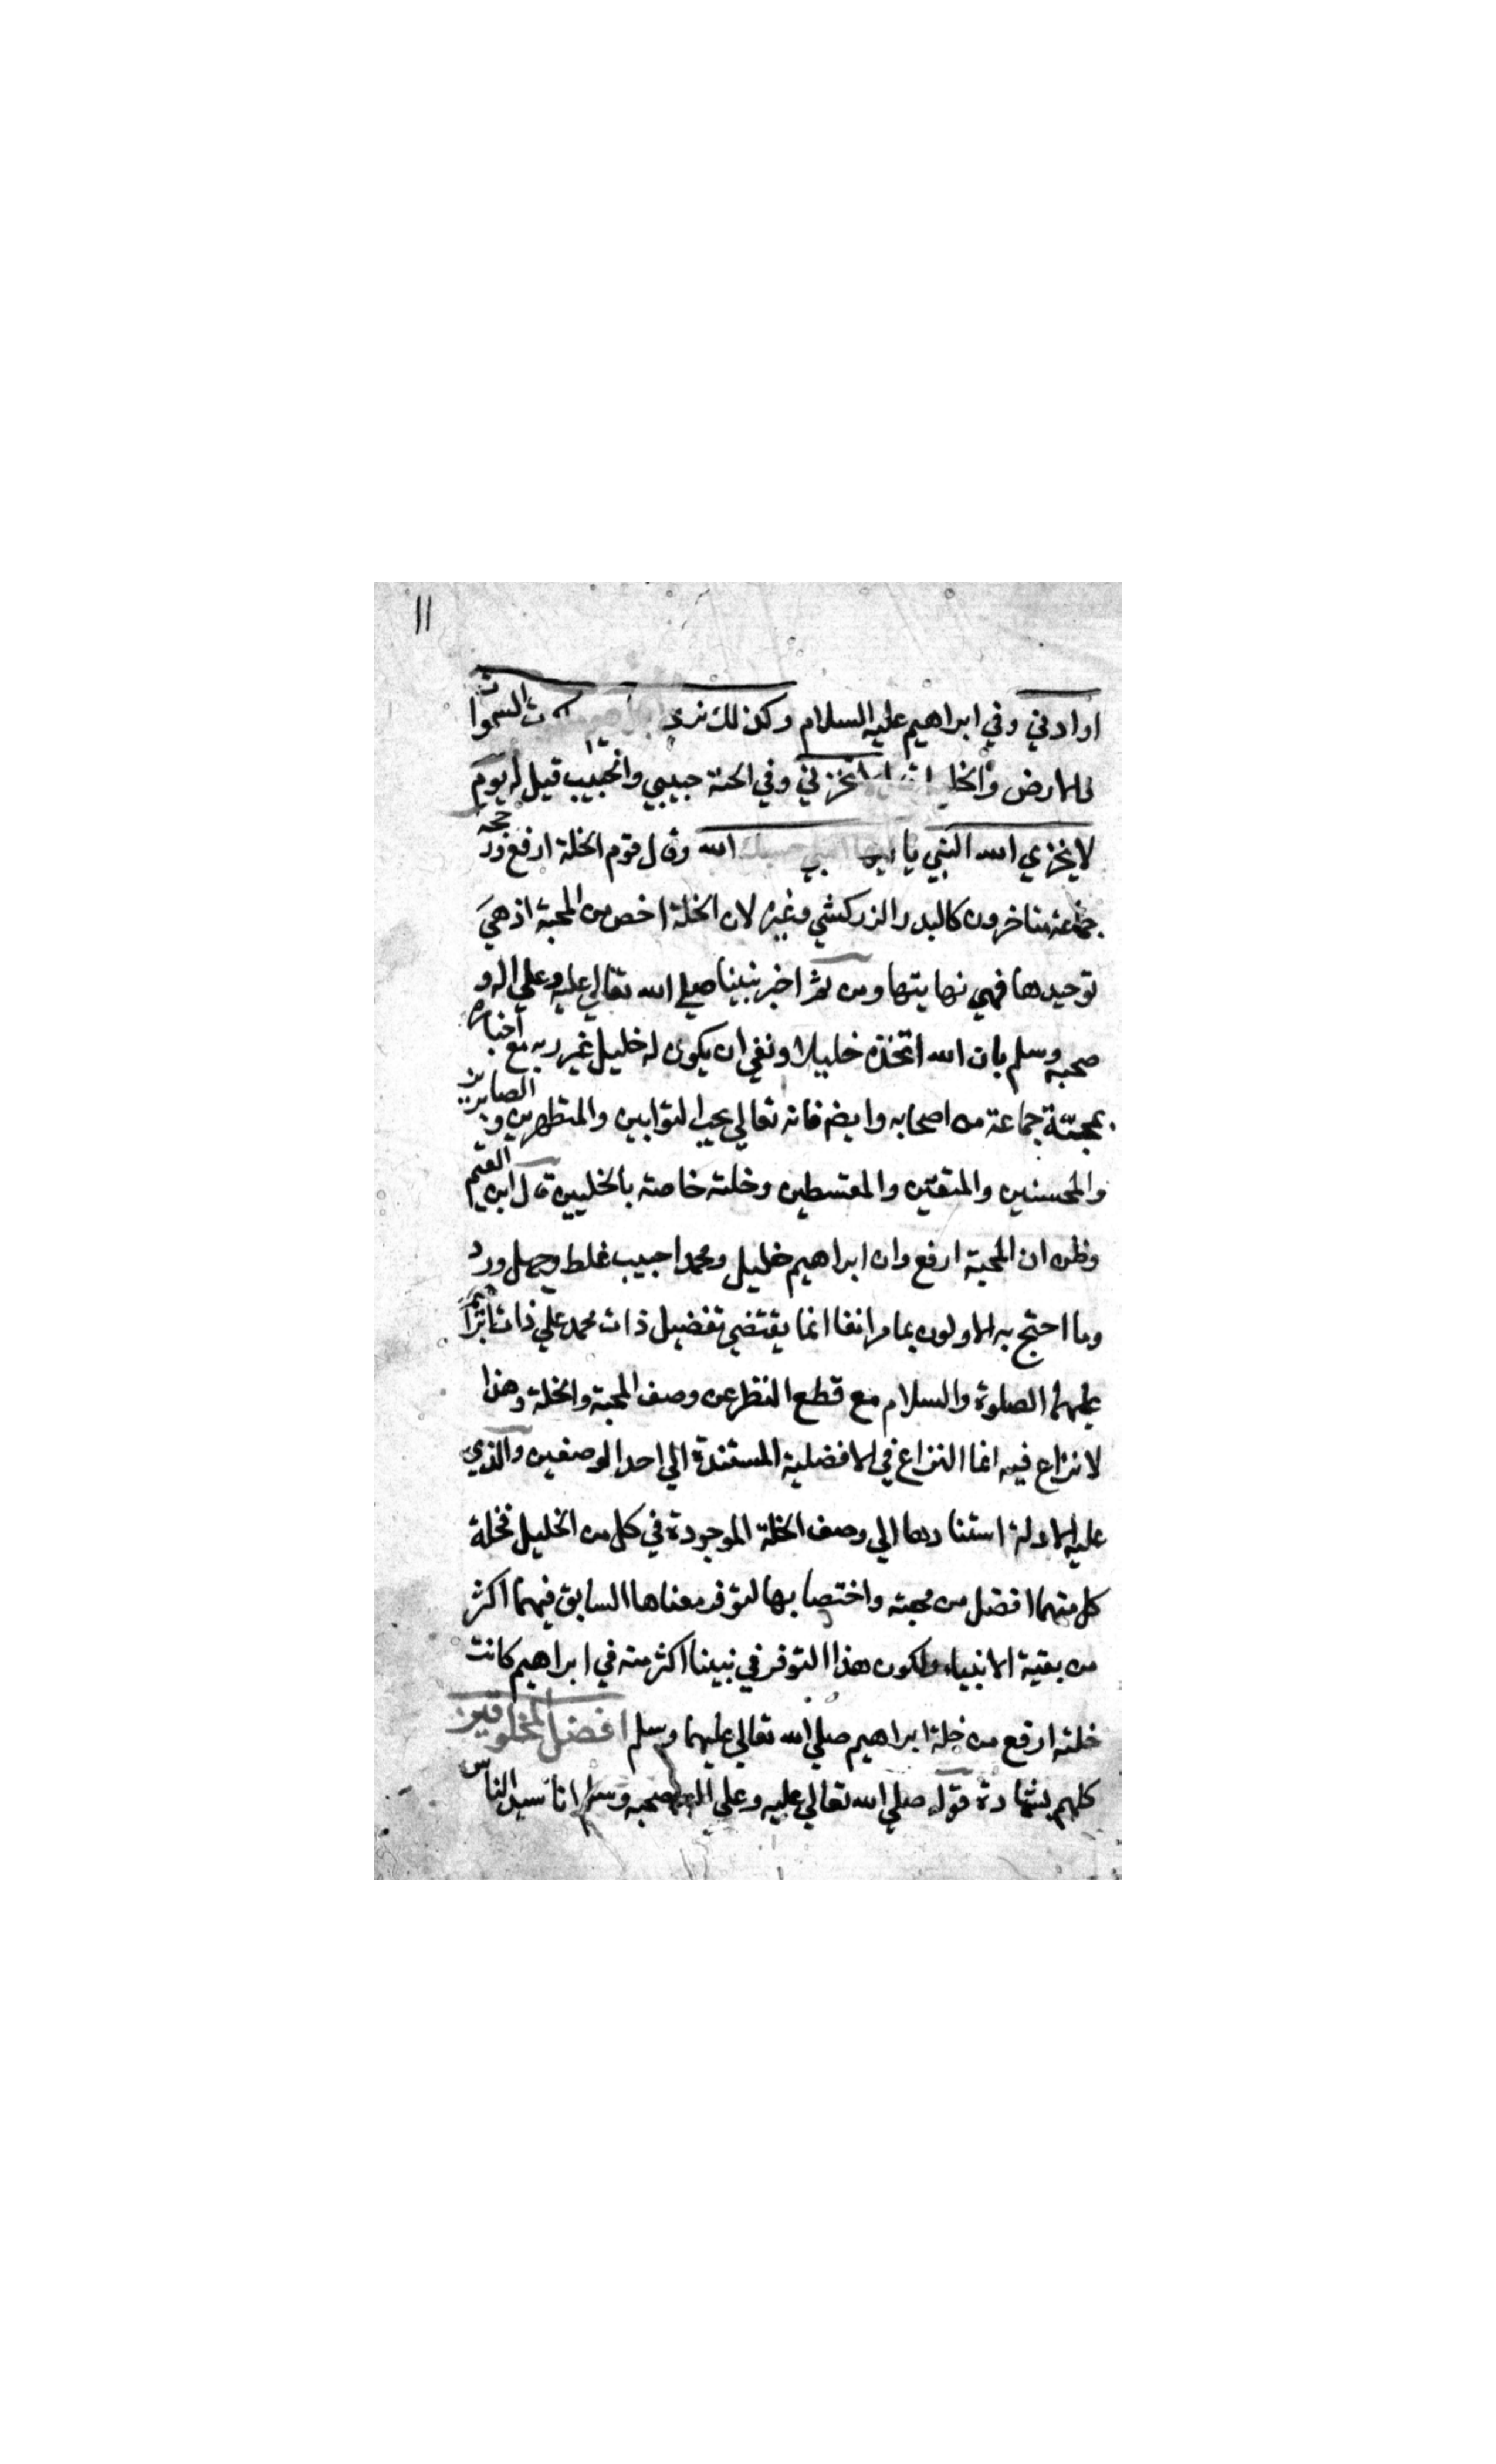 ١١
او ادني وفي ابراهيم عليه السلام وكذلك نري ابراهيم ملكوت السموات
والارض والخليل قال لا تخزني وفي المحنة حسبي والحبيب قيل له يوم
لا يخزي الله النبي يا ايها النبي حسبك الله وقال قوم الخلة ارفع ورجحه
جماعة متاخرون كالبدر الزركشي وغيره لان الخلة اخص من المحبة اذ هي
توحيدها فهي نهايتها ومن ثم اخبر نبينا صلي الله تعالي عليه وعلي اله و
صحبه وسلم بان الله اتخذه خليلا ونفي ان يكون له خليل غير ربه مع اخباره
بمحبته جماعة من اصحابه وايضم فانه تعالي يحب التوابين والمتطهرين والصابرين
والمحسنين والمتقين والمقسطين وخلته خاصته بالخليلين قال ابن القيم
وظن ان المحبة ارفع وان ابراهيم خليل ومحمدا حبيب غلط وجهل ورد
وما احتج به الاولون بما مر انفا انما يقتضي تفضيل ذات محمد علي ذات ابراهيم
عليهما الصلوة والسلام مع قطع النظر عن وصف المحبة والخلة وهذا
لا نزاع فيه انما النزاع في الافضلية المستندة الي احد الوصفين والذي
عليه الادلة استنادها الي وصف الخلة الموجودة في كل من الخليل فخلة
كل منهما افضل من محبته واختصا بها لتوفر معناها السابق فيهما اكثر
من بقية الانبياء ولكون هذا التوفر في نبينا اكثر منه في ابراهيم كانت
خلته ارفع من خلة ابراهيم صلي الله تعالي عليهما وسلم افضل المخلوقين
كلهم بشهادة قوله صلي الله تعالي عليه وعلي اله وصحبه وسلم انا سيد الناس